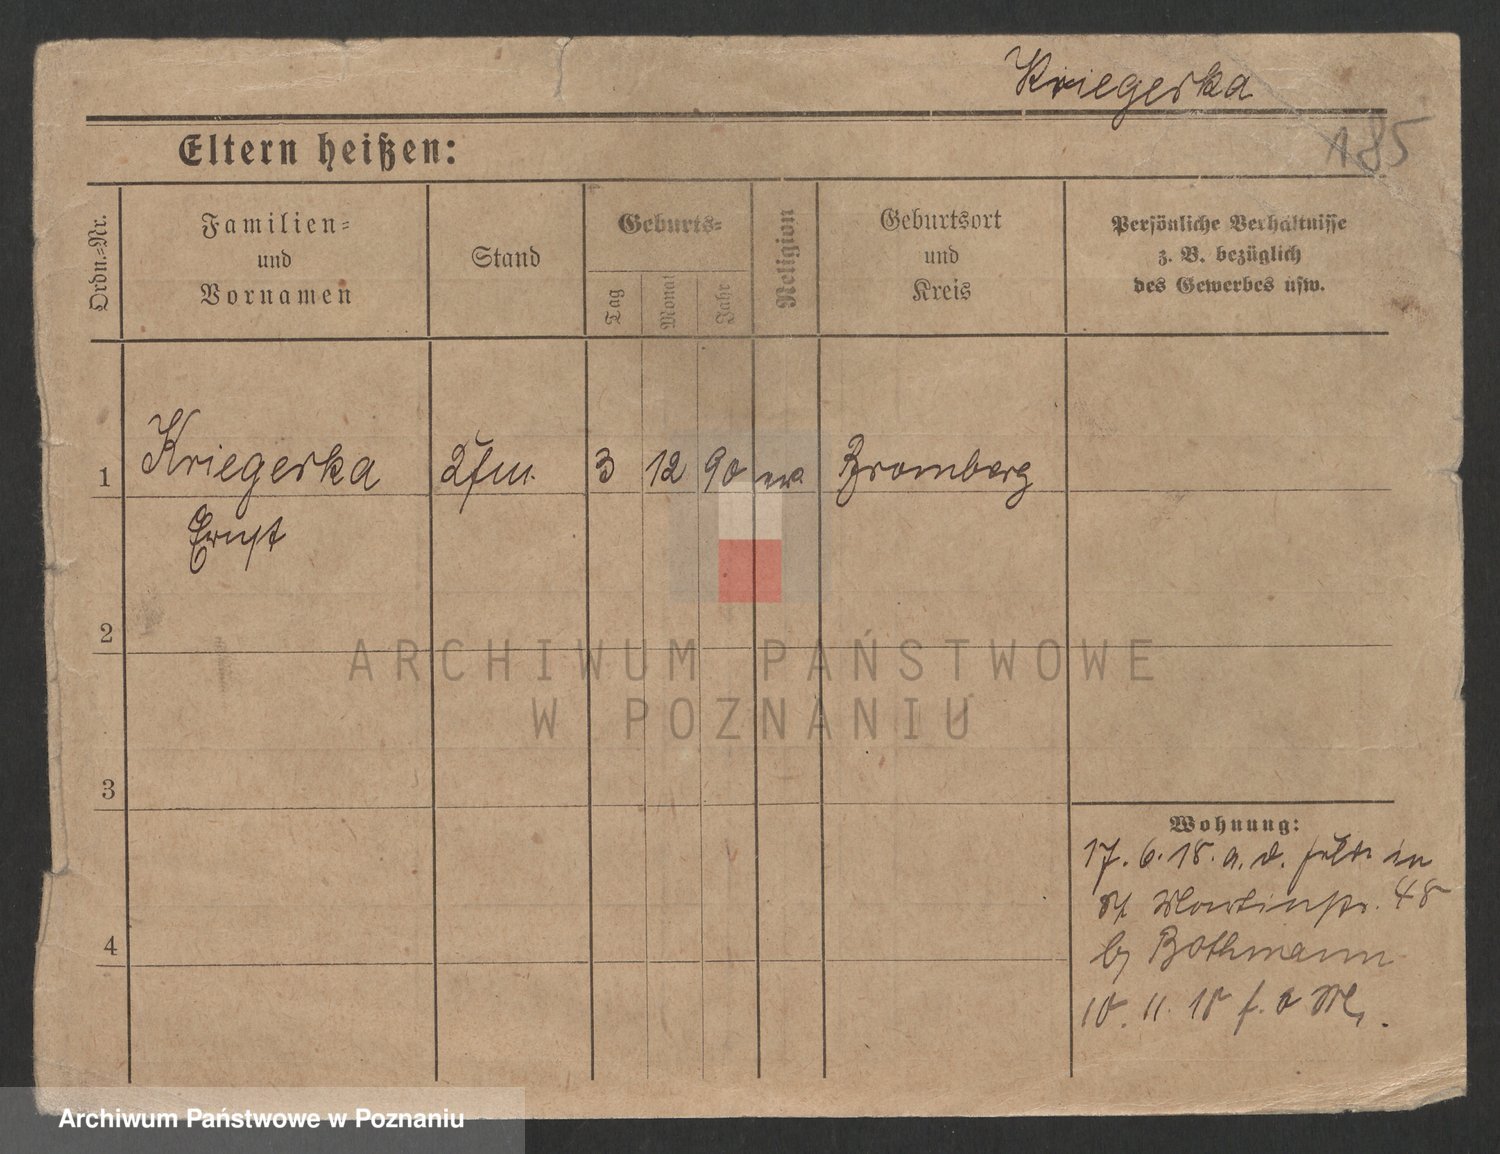 Kriegerska
185
Eltern heißen:
Ordn.-Nr.
Familien-
und
Vornamen
Stand
Geburts-
Tag
Monat
Jahr
Religion
Geburtsort
und
Kreis
Persönliche Verhältnisse
z. B. bezüglich
des Gewerbes usw.
1
Kriegerska
3
12
90
ev.
Bromberg
Ernst
2
ARCHIWUM PAŃSTWOWE
W POZNANIU
3
Wohnung:
17. 6. 18. a. d. in
St Martinstr. 48
4
b/ Bothmann
10. 11. 18
Archiwum Państwowe w Poznaniu